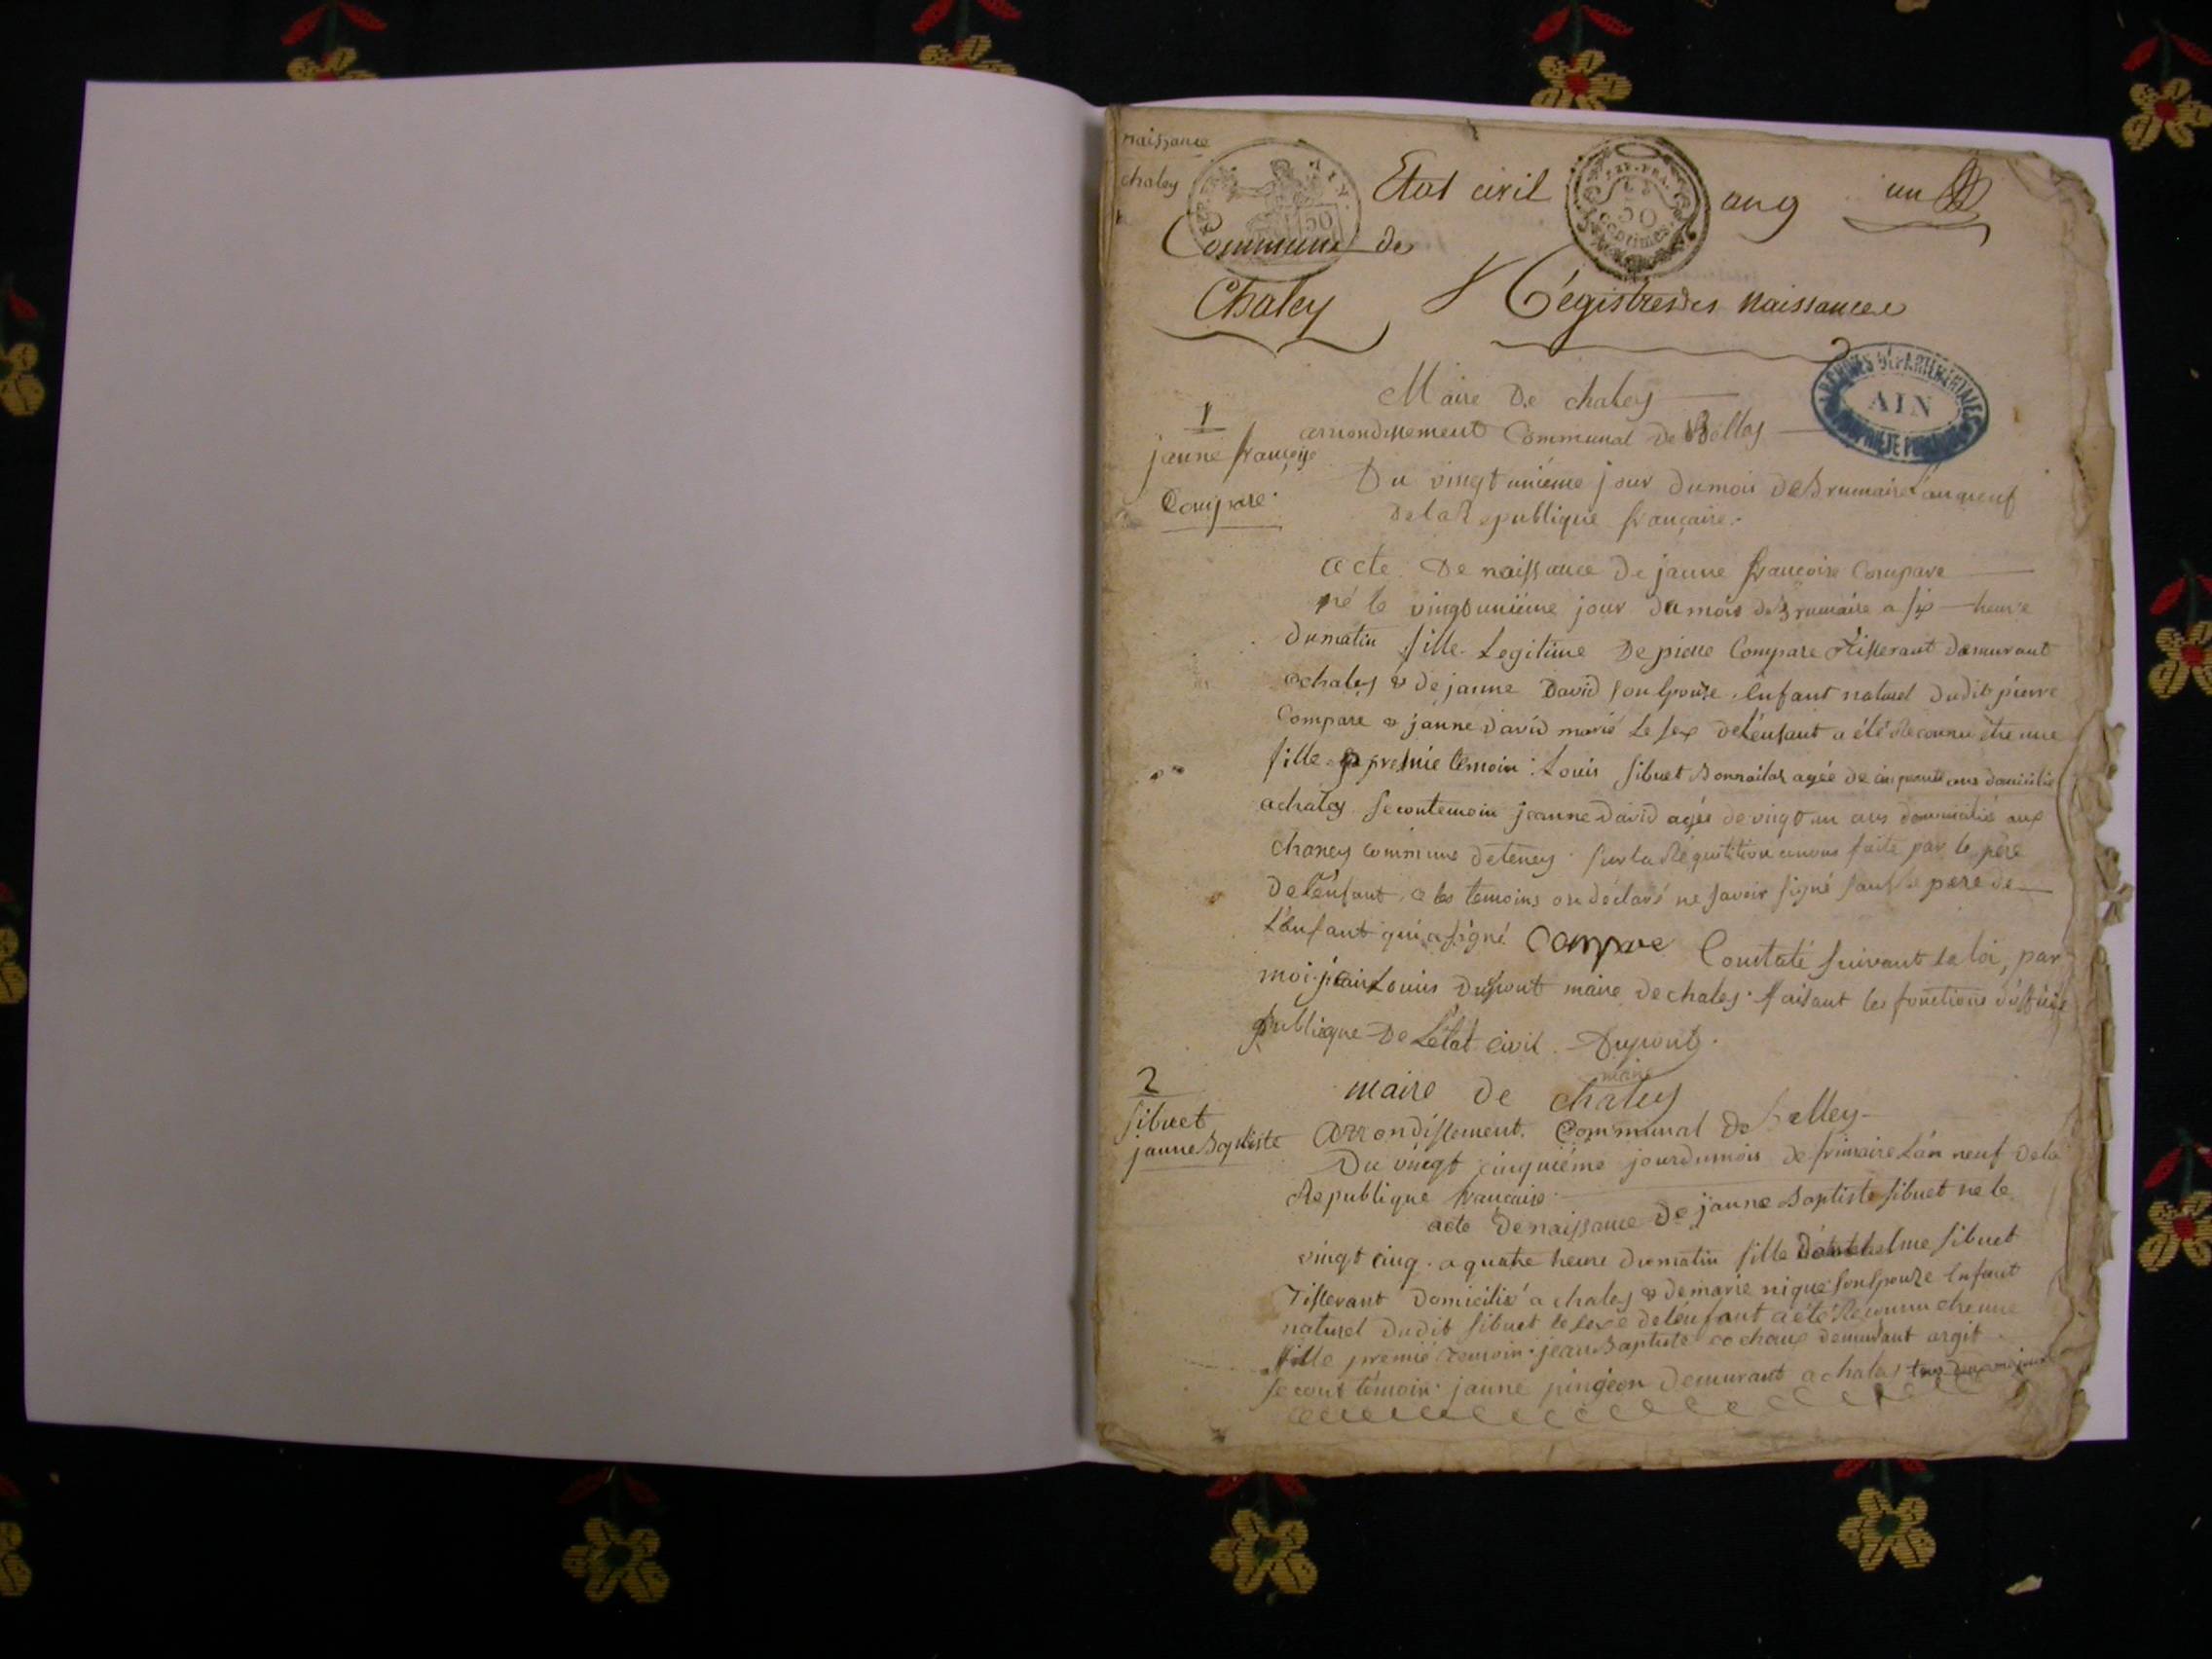 naissance
chaley
Etat civil
an 9
un
50
50
centimes
Commune de
Chaley
Régistres des naissances
ARCHIVES DÉPARTEMENTALES
AIN
Maire De chaley
1
jeanne françoise
Compare
arrondissement Communal De Belley
Du vingt unieme jour du mois De Brumaire L'an neuf
De la Republique française.
acte De naissance De janne françoise Compare
né le vingt unieme jour du mois de Brumaire a six heure
du matin fille Legitime De pierre Compare Tisserant demurant
a chaley & de janne David son Epouse. Enfant naturel dudit pierre
Compare & janne David marié Le sex de l'enfant a été Reconnu être une
fille premie temoin Louis sibuet agée de ans domicilié
a chaley secontemoin jeanne David agée de vingt un ans domicilié aux
chaney commune de teney. sur la Requisition a nous faite par le père
De l'enfant, & les temoins on déclaré ne savoir signé sauf le pere de
L'enfant qui a signé Compare Constaté suivant la loi, par
moi jean Louis Dupont maire de chaley. faisant les fonctions d'officie
publique De L'état civil. Dupont.
maire
2
sibuet
janne Baptiste
maire de chaley
Arrondissement Communal De Belley
Du vingt cinquiéme jour du mois de frimaire L'an neuf De la
Republique francaise
acte De naissance De janne Baptiste sibuet ne le
vingt cinq. a quatre heure du matin fille D'anthelme sibuet
Tisserant Domicilié a chaley & de marie nique son Epouze Enfant
naturel dudit sibuet le sexe de l'enfant a été Reconnu etre une
fille premié temoin jean Baptiste cochoux demurant argit
secont témoin janne pingeon demurant a chaley